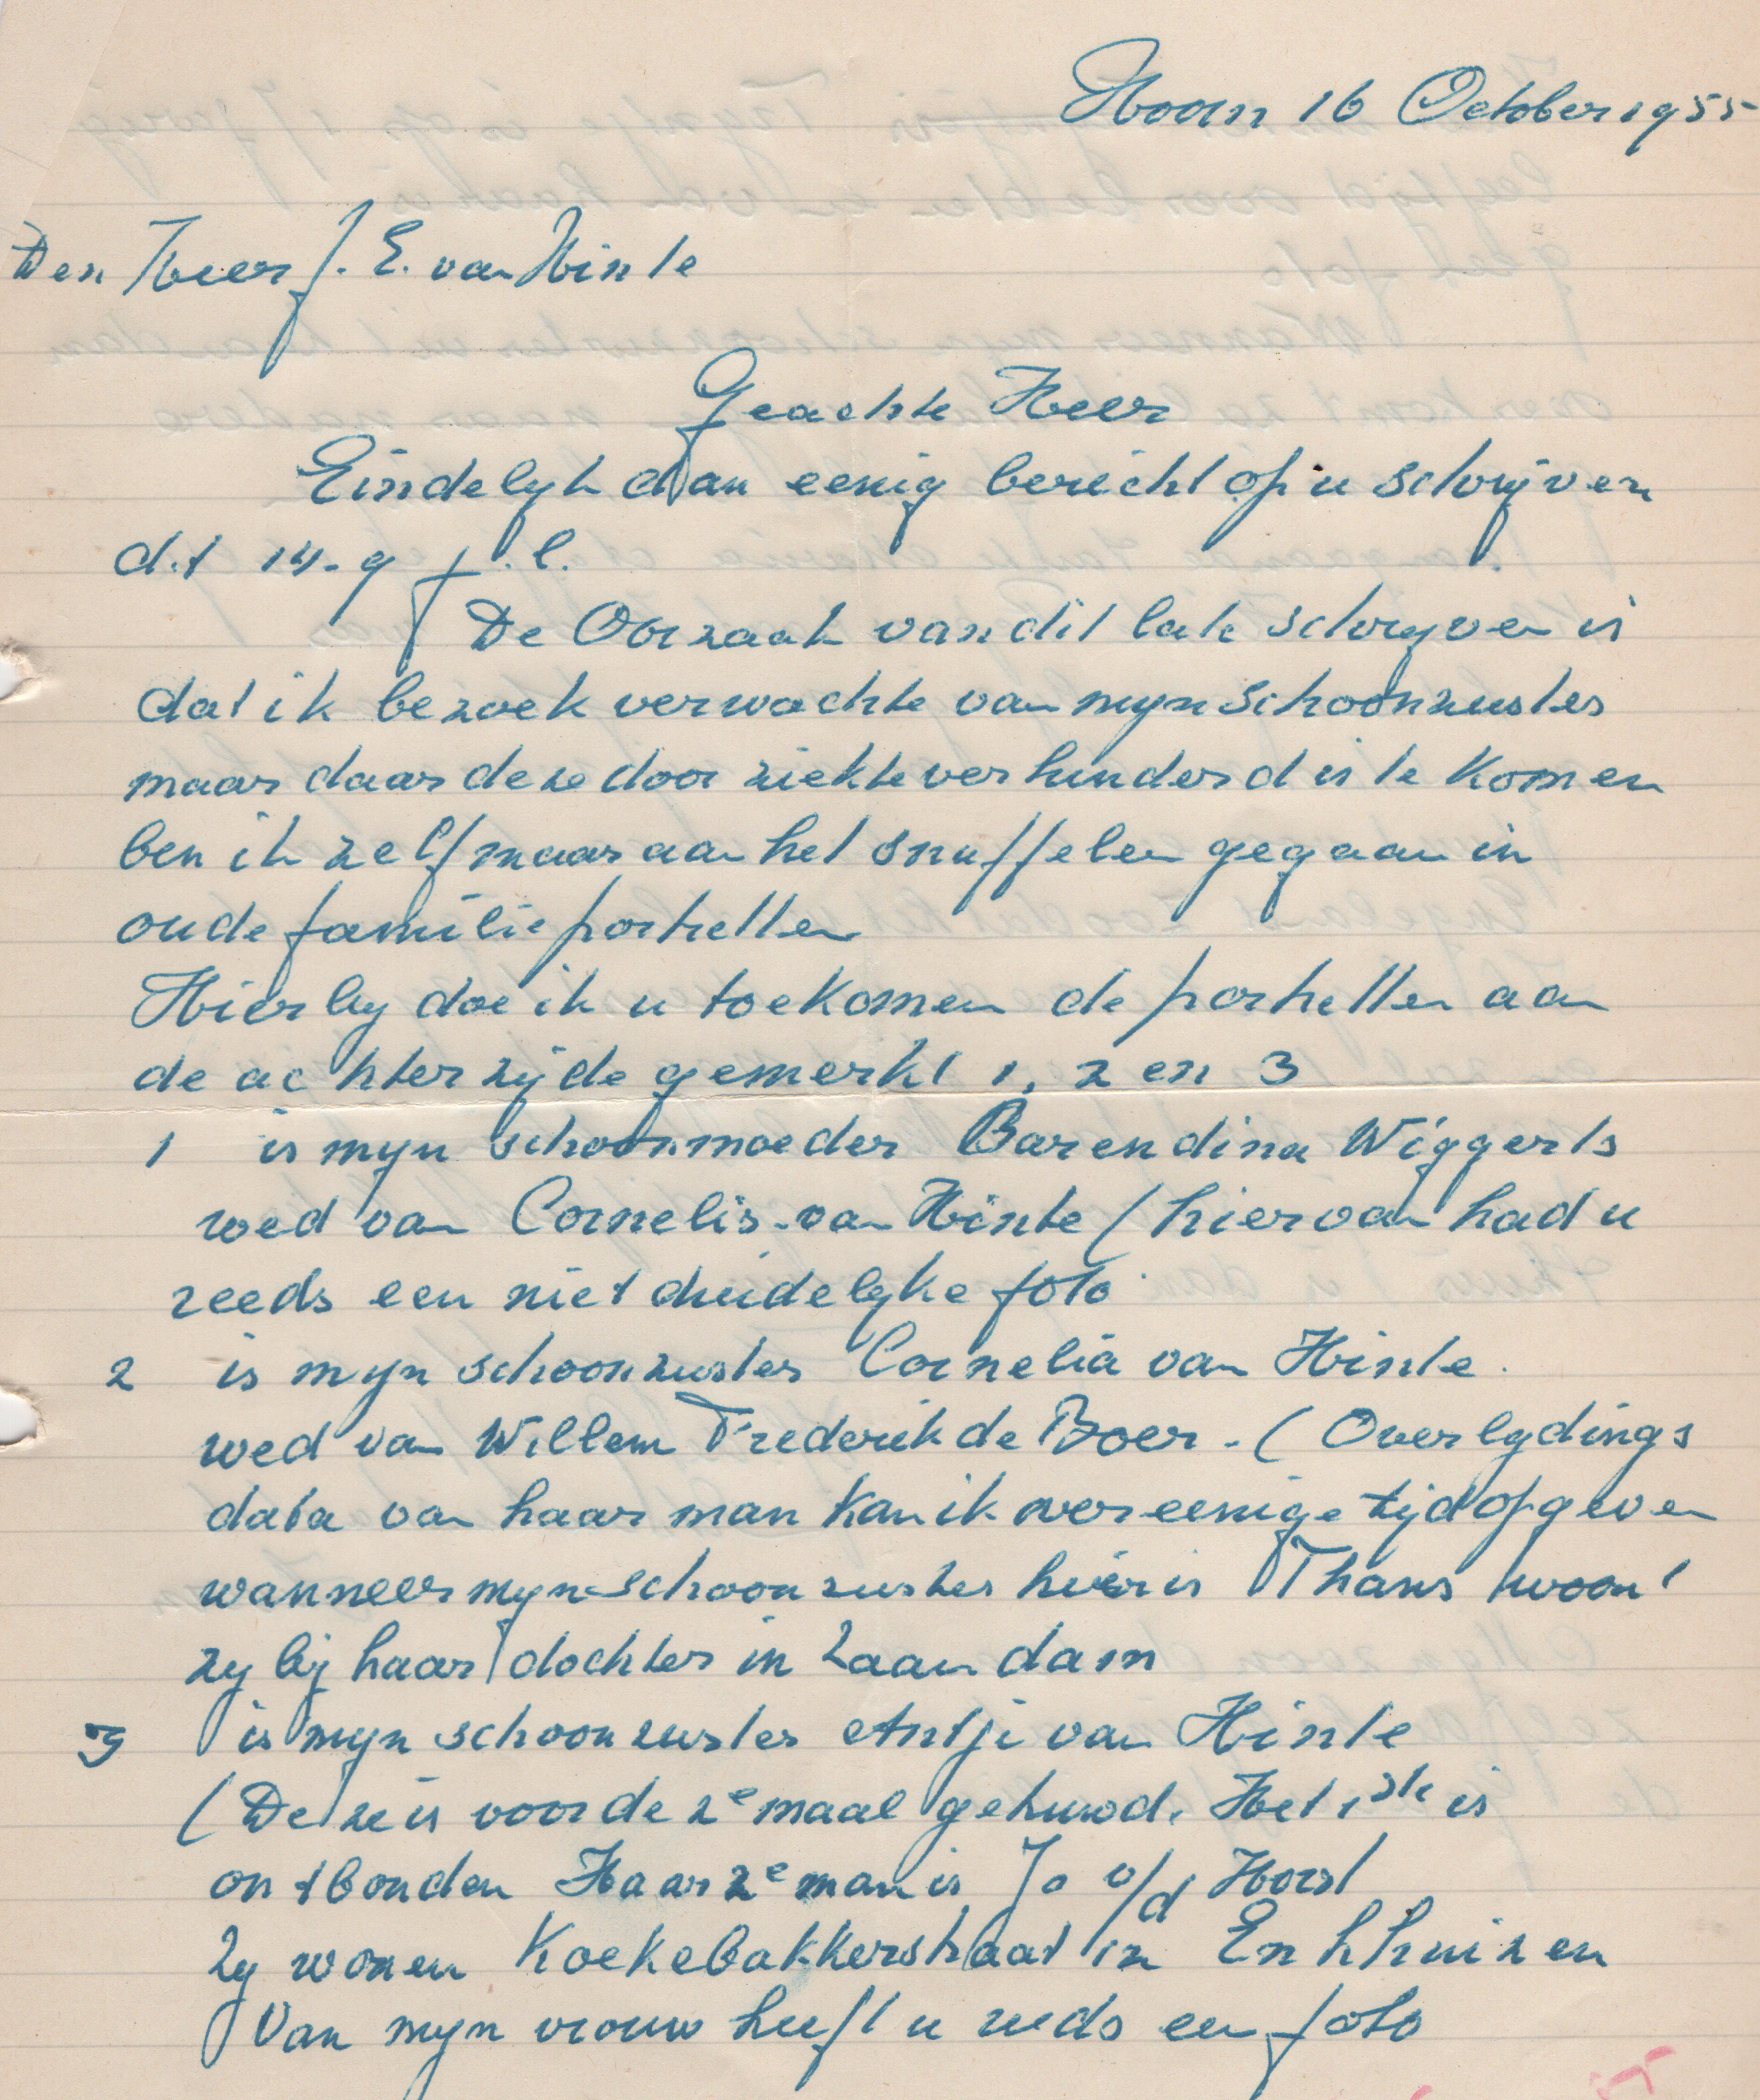 Hoorn 16 October 1955
Den Heer J. E. van Hinte
Geachte Heer
Eindelyk dan eenig bericht op u schrijven
d.d 14-9 j.l.
De Oorzaak van dit late schryven is
dat ik bezoek verwachte van myn schoonzuster
maar daar deze door ziekte verhinderd is te komen
ben ik zelf maar aan het snuffelen gegaan in
oude familie portretten
Hierby doe ik u toekomen de portretten aan
de achterzijde gemerkt 1, 2 en 3
1 is myn schoonmoeder Barendina Wiggerts
wed van Cornelis van Hinte (hiervan had u
reeds een niet duidelyke foto
2 is myn schoonzuster Cornelia van Hinte.
wed van Willem Frederik de Boer - (Overlydings
data van haar man kan ik over eenige tijd opgeven
wanneer myn schoonzuster hier is Thans woont
zy bij haar dochter in Zaandam
3 is myn schoonzuster Antje van Hinte
(Deze is voor de 2e maal gehuwd. Het 1ste is
ontbonden Haar 2e man is Jo v/d Horst
Zy wonen Koekebakkerstraat in Enkhuizen
Van myn vrouw heeft u reeds een foto